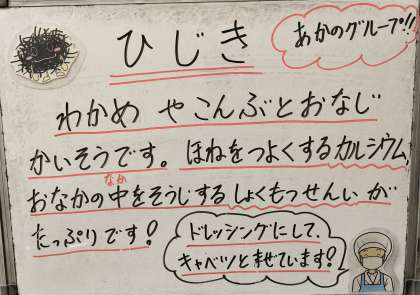 ひじき
あかのグループ!!
わかめ やこんぶとおなじ
かいそうです。ほねをつよくするカルシウム
おなかの中をそうじするしょくもつせんいが
なか
たっぷりです!
ドレッシングにして、
キャベツとませています!